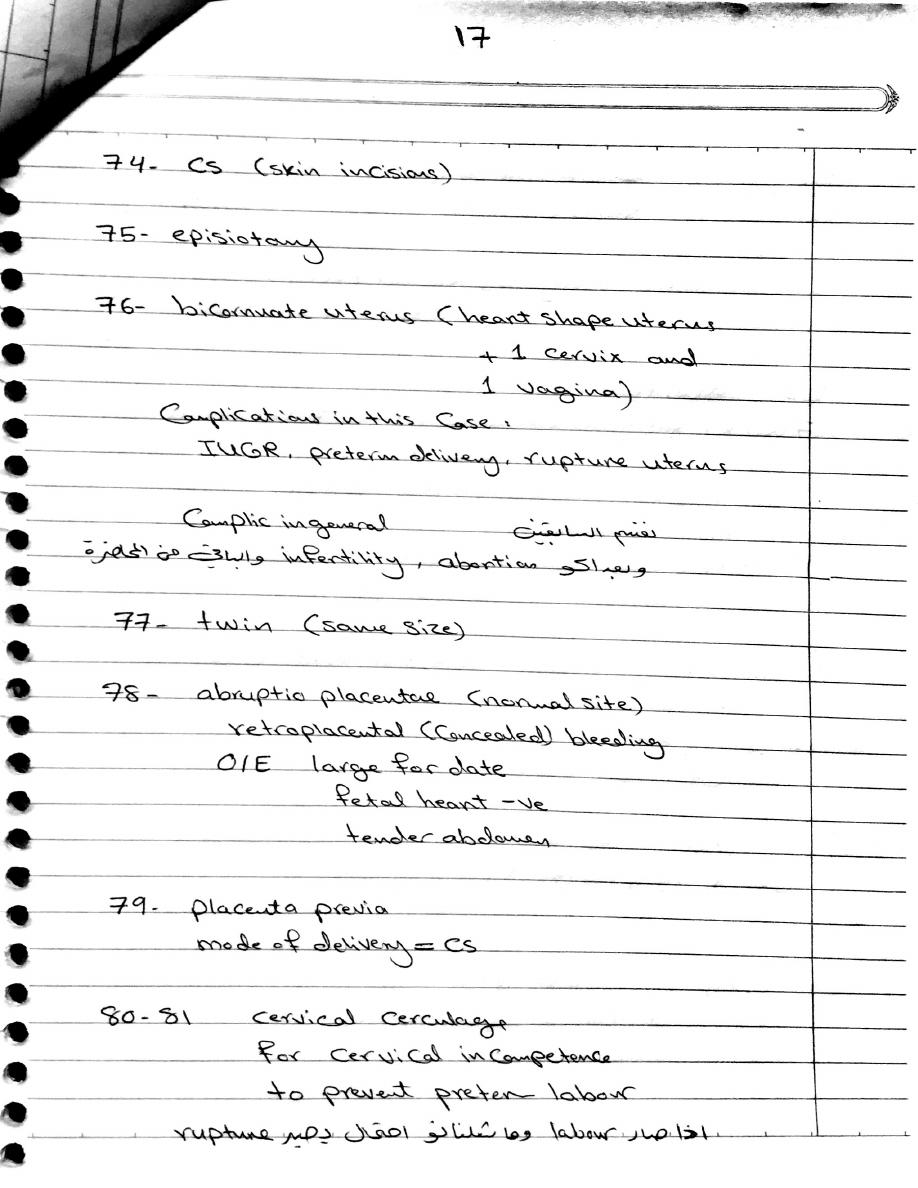 17
74- CS (skin incisions)
75- episiotomy
76- bicornuate uterus (heart shape uterus
+ 1 cervix and
1 vagina)
Complications in this case:
IUGR, preterm delivery, rupture uterus
Complic in general نفس السابقين
وبعد اكو infertility, abortion والباقي من المحاضرة
77- twin (same size)
78- abruptio placentae (normal site)
retroplacental (concealed) bleeding
O/E large for date
fetal heart -ve
tender abdomen
79- placenta previa
mode of delivery = CS
80-81 cervical cerculage
for cervical incompetence
to prevent preterm labour
اذا صار labour وما شلناه احتمال يصير rupture